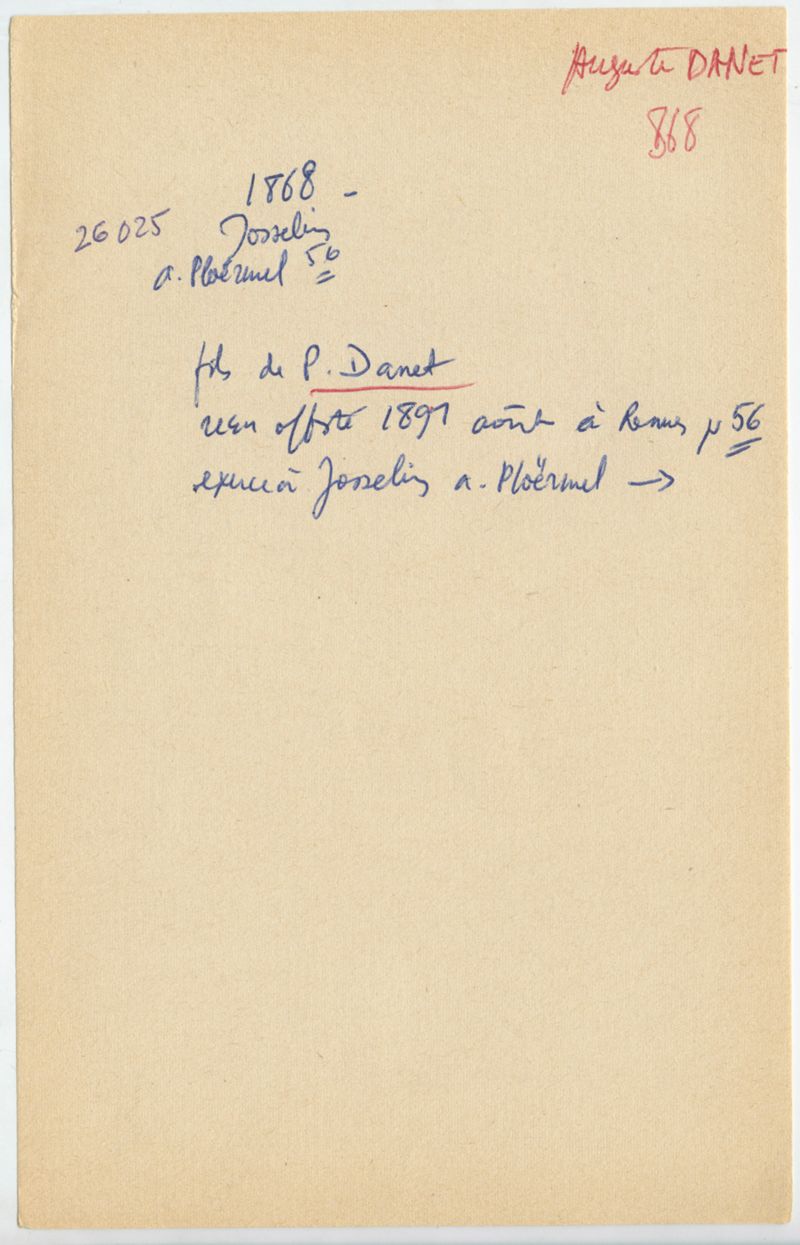 Auguste DANET
868
1868 -
26025 Josselin
a. Ploërmel 56
fils de P. Danet
reçu offsté 1891 août à Rennes pr 56
exerce à Josselin a. Ploërmel →